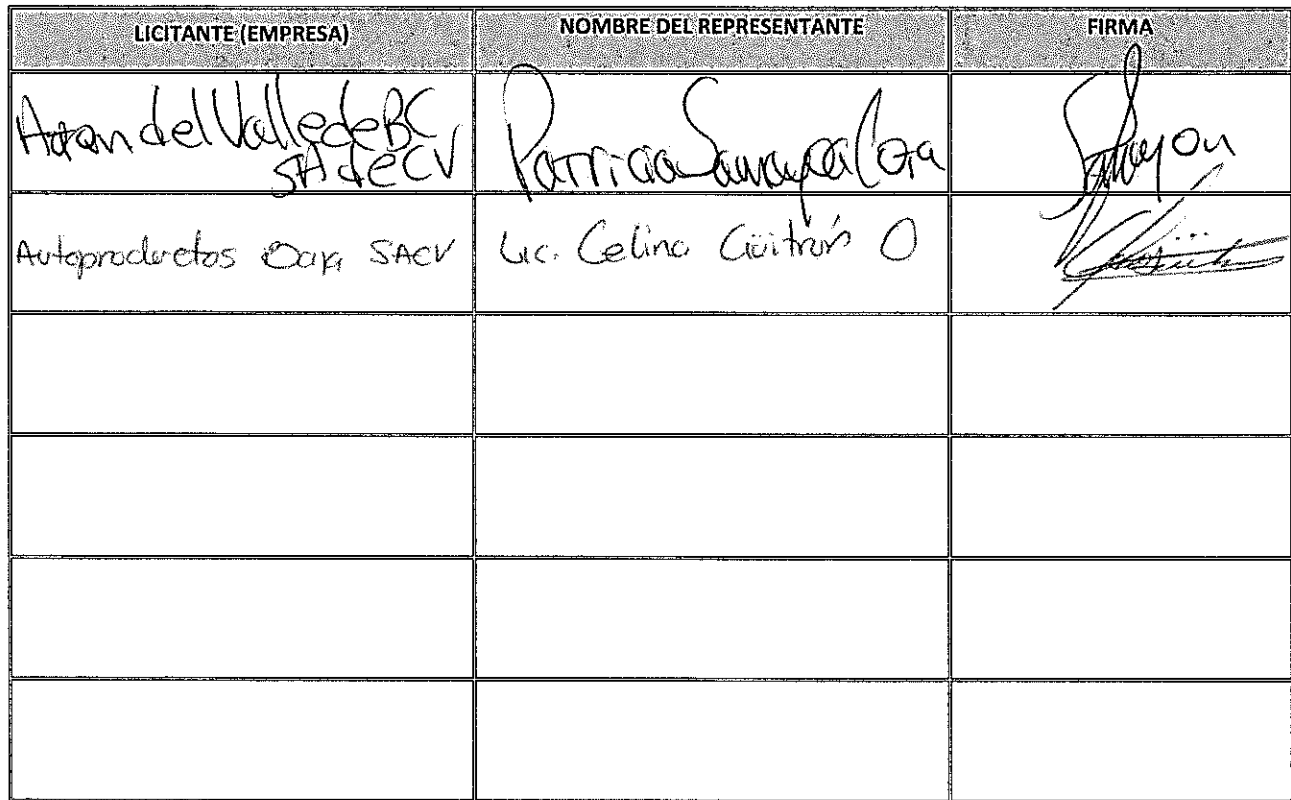 LICITANTE (EMPRESA) NOMBRE DEL REPRESENTANTE FIRMA
del Valle de BC
SA de CV
Patricia
Autoproductos Baja SACV Lic. Celina Güitrón O